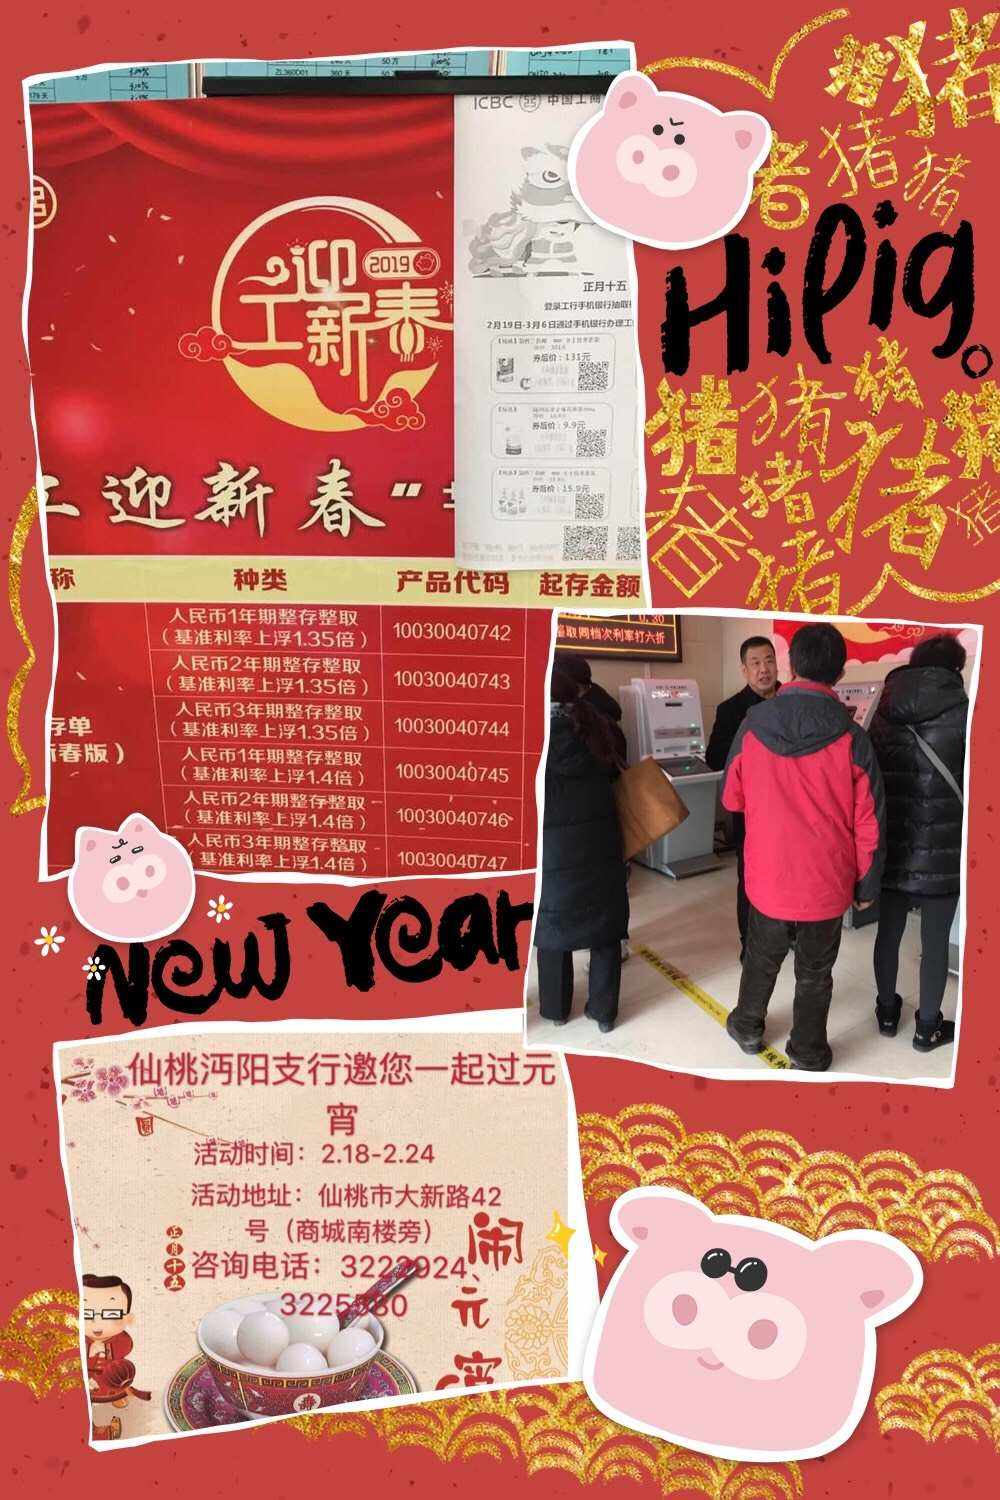 ZL360D01 360天 50万
ICBC 中国工商
迎
2019
工新春
正月十五
登录工行手机银行抽取
2月19日-3月6日通过手机银行办理工
券后价：131元
券后价：9.9元
券后价：15.9元
工迎新春“
称 种类 产品代码 起存金额
人民币1年期整存整取
（基准利率上浮1.35倍） 10030040742
人民币2年期整存整取
（基准利率上浮1.35倍） 10030040743
人民币3年期整存整取
（基准利率上浮1.35倍） 10030040744
存单
新春版）
人民币1年期整存整取
（基准利率上浮1.4倍） 10030040745
人民币2年期整存整取
（基准利率上浮1.4倍） 10030040746
人民币3年期整存整取
（基准利率上浮1.4倍） 10030040747
猪猪
猪猪猪
HiPig。
猪猪猪猪
猪猪猪
春猪
0.30
整取同档次利率打六折
New Year
仙桃沔阳支行邀您一起过元
宵
活动时间：2.18-2.24
活动地址：仙桃市大新路42
号（商城南楼旁）
咨询电话：3222924、
3225580
正月十五
闹元宵